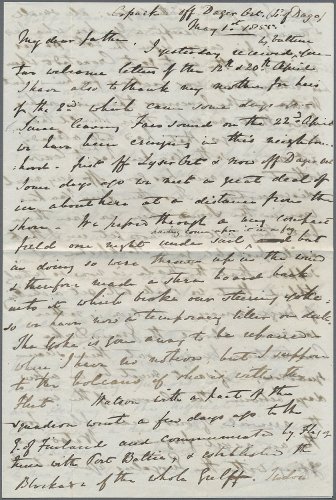 off Dager Ort. (I. of Dago)
May 1st 185
My dear father. I yesterday received your
two welcome letters of the 12th & 20th April
I have also to thank my mother for hers
of the 2nd which came some days ago.
Since leaving Faro sound on the 22nd April
we have been cruizing in this neighbour-
hood - first off & now off Dager Ort
Some days ago we met a great deal of
ice about here at a distance from the
shore - We passed through a very compact
field one night under sail, but
in doing so were thrown up in the wind
& therefore made a stern board back
into it which broke our steering yoke
so we have now a temporary tiller on deck
The yoke is gone away to be repaired
where I have no notion, but I suppose
to the Volcano if she is with the
Fleet Watson with a part of the
squadron went a few days ago to the
G. of Finland and communicated by Flag of
truce with Port Baltic, & established the
Blockade of the whole Gulf.